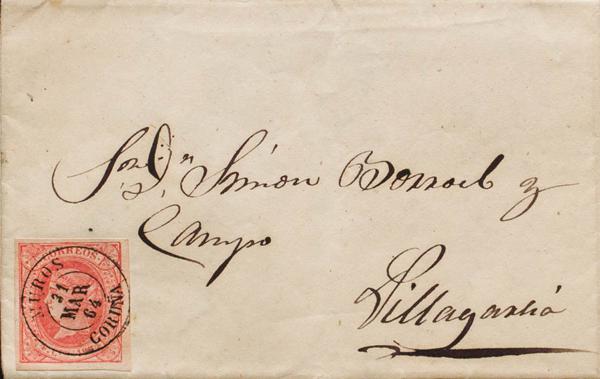 Sor. Dn. Simon Borrael y
Campo
Villagarcia
CORREOS
MUROS
31
MAR
64
CORUÑA